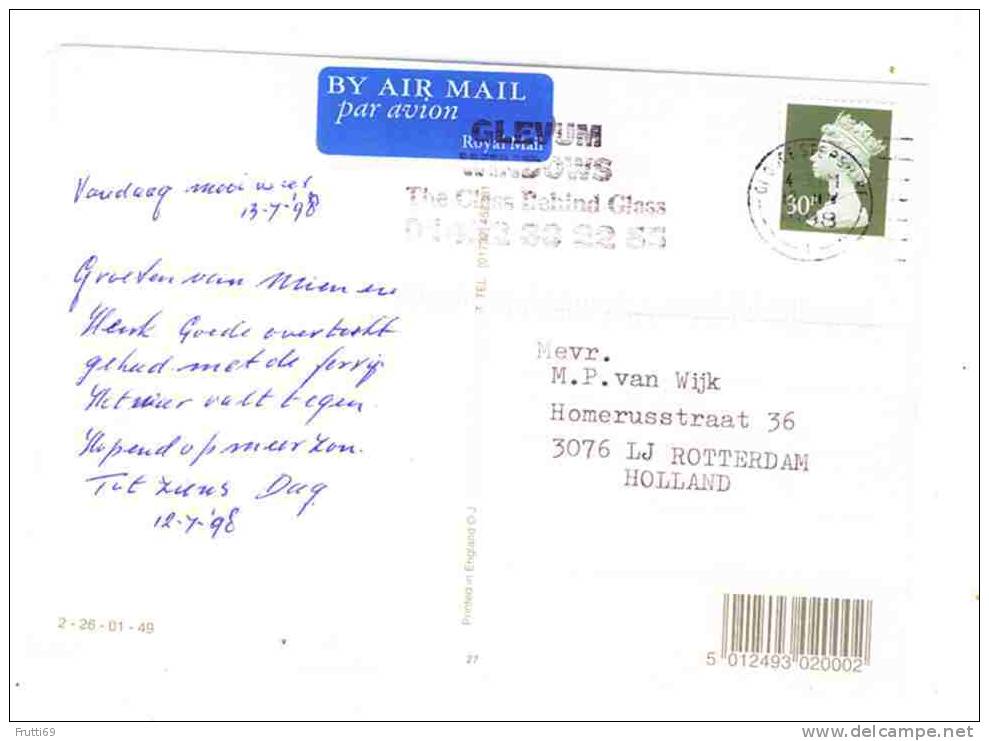 BY AIR MAIL
par avion
Royal Mail
GLEVUM
WINDOWS
The Glass Behind Glass
30P
Vandaag mooi weer
13-7-'98
Groeten van Mien en
Henk Goede overtocht
gehad met de ferry
Het weer valt tegen.
Hopend op meer zon.
Tot ziens Dag
12-7-'98
Mevr.
M.P.van Wijk
Homerusstraat 36
3076 LJ ROTTERDAM
HOLLAND
Printed in England
2-26-01-49
27
5 012493 020002
Frutti69
www.delcampe.net